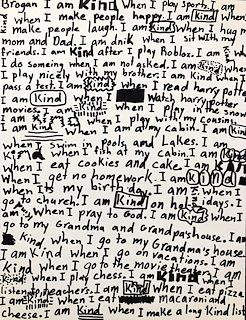 Brogan. I am Kind When I play sports. I am
Kind when I make people happy. I am Kind when I
make people laugh. I am Kind When I hug my
mom and Dad. I am Kind when I sit with my
friends. I am Kind after I play Roblox. I am
I do someing when I am not asked. I am Kind when
I play nicely with my brother. I am Kind when I
pass a test. I am Kind When I read harry potter
I am Kind when I Watch harry potter
movies. I am When I Play in the snow
I am Kind When I play with my cousins.
I am Kind when I am at my cabin. I am Kind
when I swim in pools and Lakes. I am
when I fish at my cabin. I am Kind
When I eat cookies and cake. I am Kind
When I get no homework. I am kind
when its my birthday. I am when I
go to church. I am Kind on holidays.
I am when I pray to God. I am Kind when I
go to my Grandma and Grandpas house. I am
Kind When I go to my Grandma's house.
I am Kind When I go on vacations. I am
Kind when I go to the movies. I am
When I play chess. I am Kind When I
listen to teachers. I am Kind when I eat pizza.
I am Kind When I eat macaroni and
cheese. I am Kind When I make a long Kind list